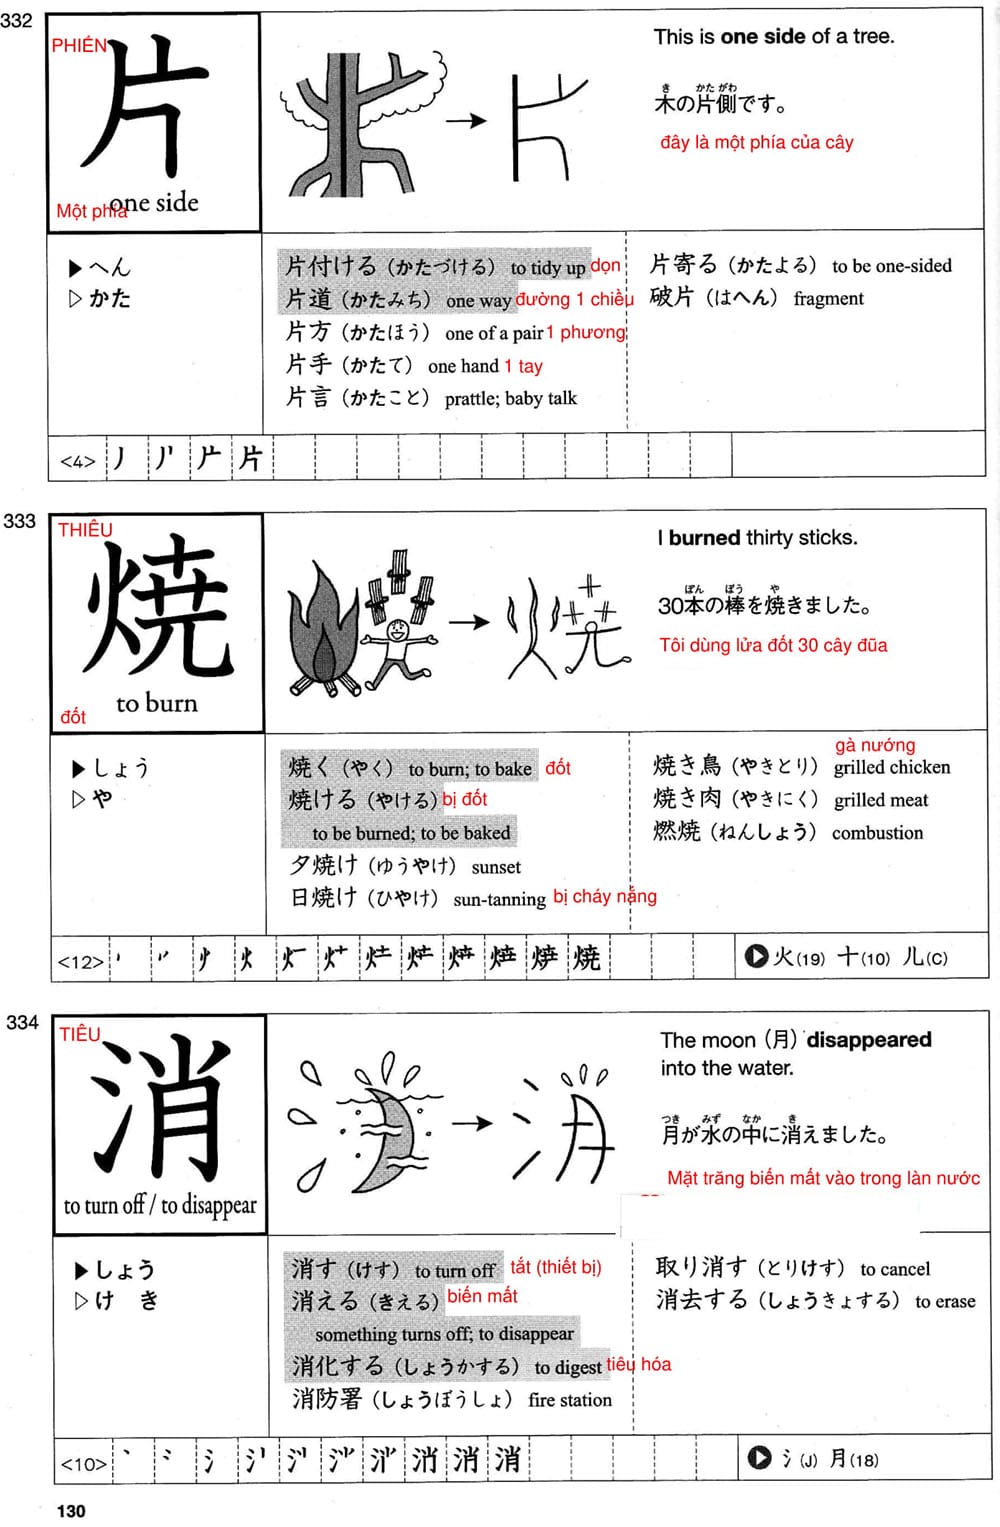 332
PHIẾN
片
Một phía
one side
This is one side of a tree.
き かた がわ
木の片側です。
đây là một phía của cây
▶ へん
▷ かた
片付ける（かたづける） to tidy up dọn
片道（かたみち） one way đường 1 chiều
片方（かたほう） one of a pair 1 phương
片手（かたて） one hand 1 tay
片言（かたこと） prattle; baby talk
片寄る（かたよる） to be one-sided
破片（はへん） fragment
<4> 片
333
THIÊU
焼
to burn
đốt
I burned thirty sticks.
ぼん ぼう や
30本の棒を焼きました。
Tôi dùng lửa đốt 30 cây đũa
▶ しょう
▷ や
焼く（やく） to burn; to bake đốt
焼ける（やける） bị đốt
to be burned; to be baked
夕焼け（ゆうやけ） sunset
日焼け（ひやけ） sun-tanning bị cháy nắng
gà nướng
焼き鳥（やきとり） grilled chicken
焼き肉（やきにく） grilled meat
燃焼（ねんしょう） combustion
<12> 焼
▶ 火(19) 十(10) 儿(C)
334
TIÊU
消
to turn off / to disappear
The moon（月）disappeared
into the water.
つき みず なか き
月が水の中に消えました。
Mặt trăng biến mất vào trong làn nước
▶ しょう
▷ け き
消す（けす） to turn off tắt (thiết bị)
消える（きえる） biến mất
something turns off; to disappear
消化する（しょうかする） to digest tiêu hóa
消防署（しょうぼうしょ） fire station
取り消す（とりけす） to cancel
消去する（しょうきょする） to erase
<10> 消
▶ 氵(J) 月(18)
130